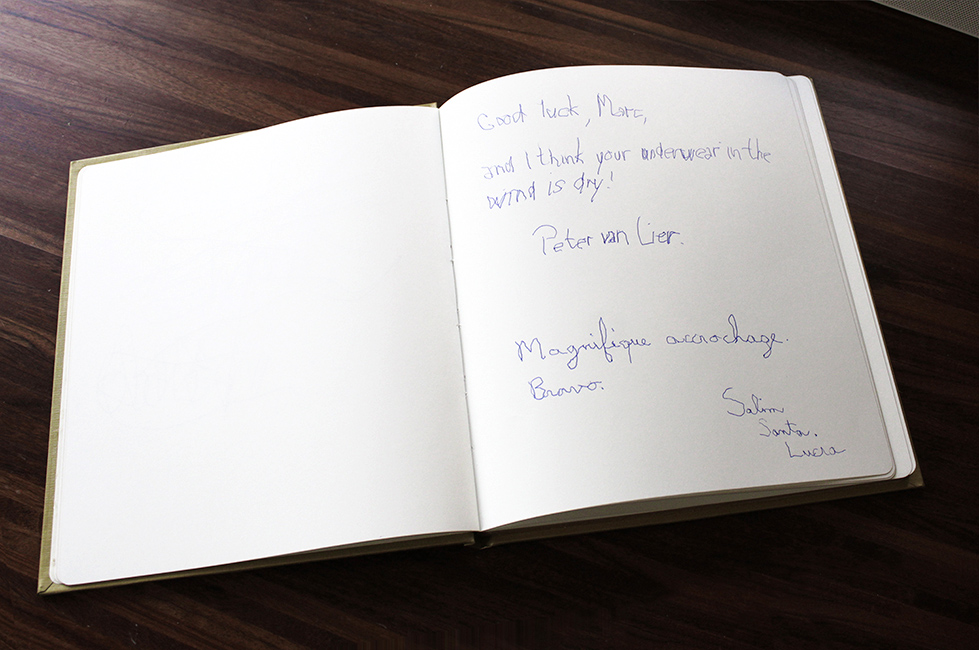 Good luck, Marc,
and I think your underwear in the
wind is dry!
Peter van Lier.
Magnifique accrochage.
Bravo.
Salim
Santa.
Lucia